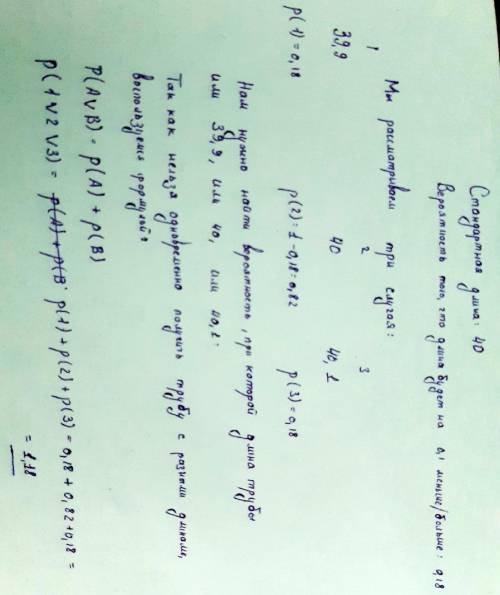 Стандартная длина: 40
Вероятность того, что длина будет на 0,1 меньше/больше: 0,18
Мы рассматриваем три случая:
1 2 3
39,9 40 40,1
p(1) = 0,18 p(2) = 1-0,18 = 0,82 p(3) = 0,18
Нам нужно найти вероятность, при которой длина трубы
или 39,9, или 40, или 40,1.
Так как нельзя одновременно получить трубу с разными длинами,
воспользуемся формулой:
P(A∨B) = p(A) + p(B)
p(1∨2∨3) = p(A) + p(B p(1) + p(2) + p(3) = 0,18 + 0,82 + 0,18 =
= 1,18